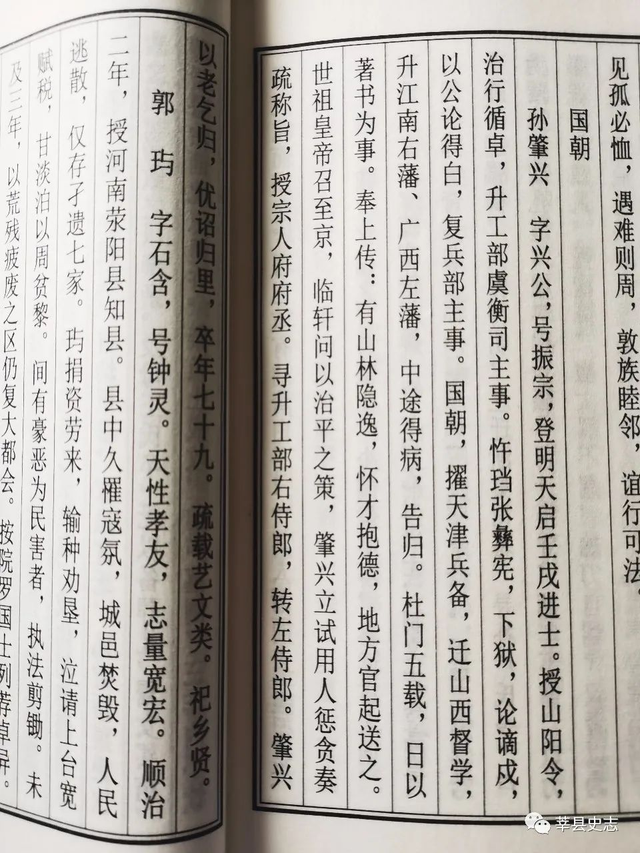 见孤必恤，遇难则周，敦族睦邻，谊行可法。
国朝
孙肇兴　字兴公，号振宗，登明天启壬戌进士。授山阳令，
治行循卓，升工部虞衡司主事。忤珰张彝宪，下狱，论谪戍，
以公论得白，复兵部主事。国朝，擢天津兵备，迁山西督学，
升江南右藩、广西左藩，中途得病，告归。杜门五载，日以
著书为事。奉上传：有山林隐逸，怀才抱德，地方官起送之。
世祖皇帝召至京，临轩问以治平之策，肇兴立试用人惩贪奏
疏称旨，授宗人府府丞。寻升工部右侍郎，转左侍郎。肇兴
以老乞归，优诏归里，卒年七十九。疏载艺文类。祀乡贤。
郭　玙　字石含，号钟灵。天性孝友，志量宽宏。顺治
二年，授河南荥阳县知县。县中久罹寇氛，城邑焚毁，人民
逃散，仅存孑遗七家。玙捐资劳来，输种劝垦，泣请上台宽
赋税，甘淡泊以周贫黎。间有豪恶为民害者，执法剪锄。未
及三年，以荒残疲废之区仍复大都会。按院罗国士列荐卓异。
莘县史志